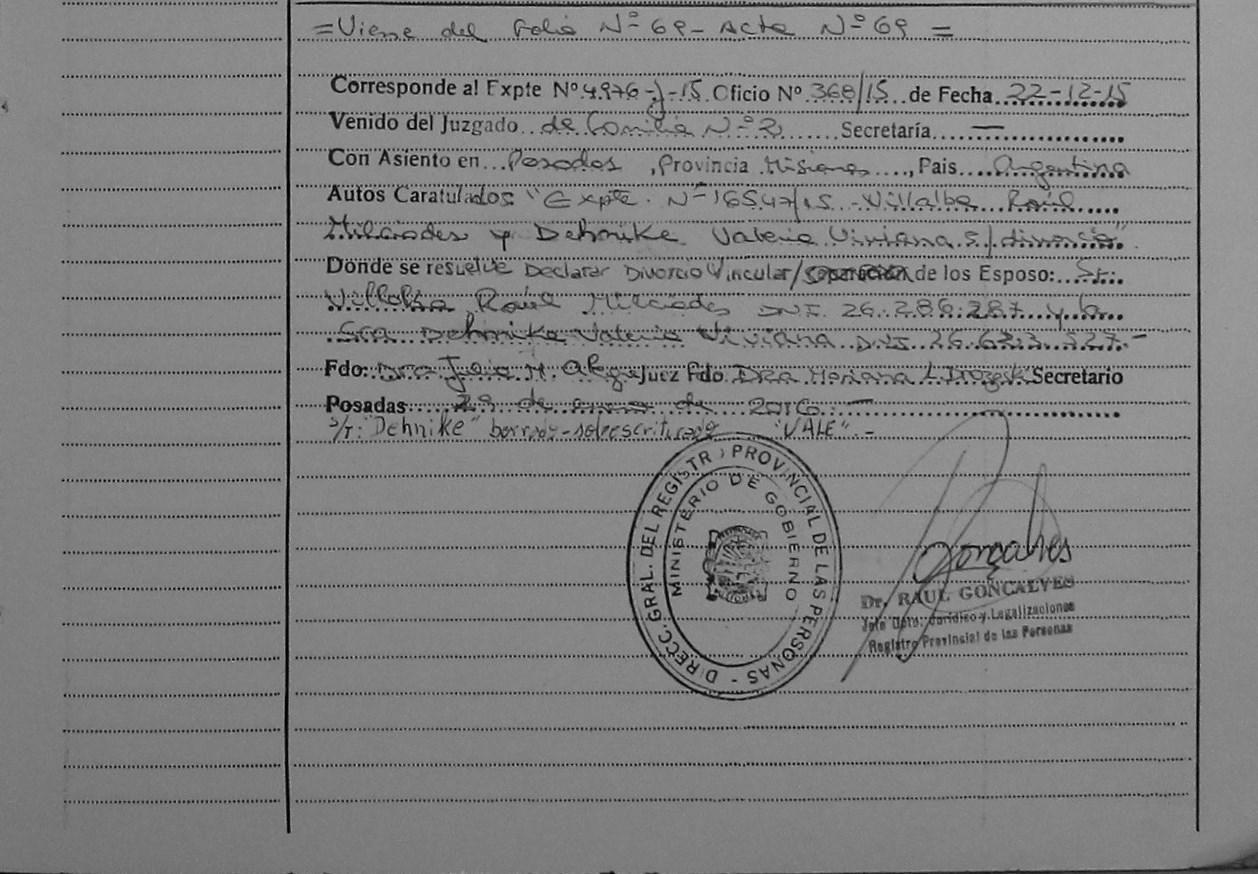 =Viene del Folio Nº 69- Acta Nº 69 =
Corresponde al Expte Nº 4976-J-15 Oficio Nº 368/15 de Fecha 22-12-15
Venido del Juzgado de Familia Nº 2 Secretaría —
Con Asiento en Posadas, Provincia Misiones, Pais Argentina
Autos Caratulados "Expte. Nº 16547/15 - Villalba Raúl
Milciades y Dehnike Valeria Viviana s/divorcio"
Donde se resuelve Declarar Divorcio Vincular/Separación de los Esposo: Sr.
Villalba Raúl Milciades DNI 26.286.287 y la
Sra Dehnike Valeria Viviana DNI 26.623.527.-
Fdo: Dra Julia M. Juez Fdo Dra Mariana L Secretario
Posadas 29 de enero de 2016. —
s/r: "Dehnike" sobreescriturado "VALE".-
DIRECC. GRAL. DEL REGISTRO PROVINCIAL DE LAS PERSONAS -
MINISTERIO DE GOBIERNO
Gonçalves
Dr. RAUL GONCALVES
Jefe Dpto. Jurídico y Legalizaciones
Registro Provincial de las Personas